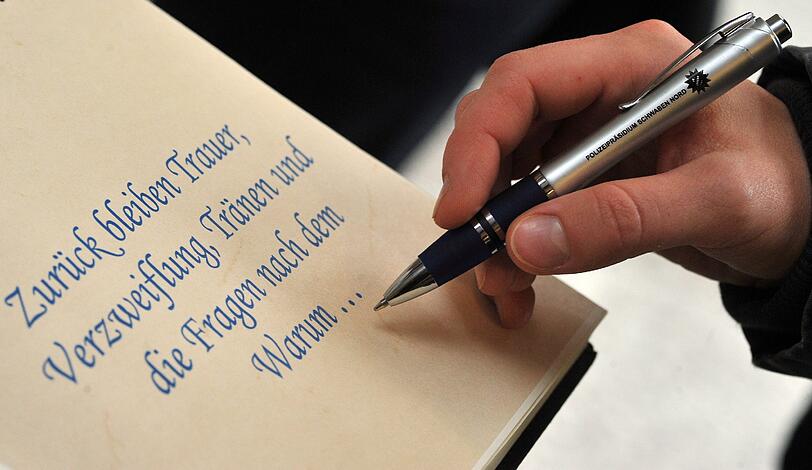 Zurück bleiben Trauer,
Verzweiflung, Tränen und
die Fragen nach dem
Warum ...
POLIZEIPRÄSIDIUM SCHWABEN NORD